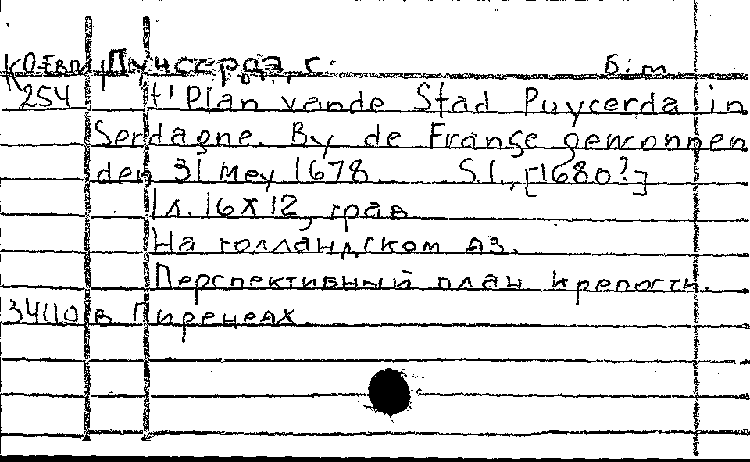 КО Евп Пуисерда, г. Б.м.
254 t' Plan vande Stad Puycerda in
Serdagne. By de Franse gewonnen
den 31 Mey 1678 S.l., [1680?]
1 л. 16x12, грав
На голландском яз.
Перспективный план крепости.
34110 в Пиренеях